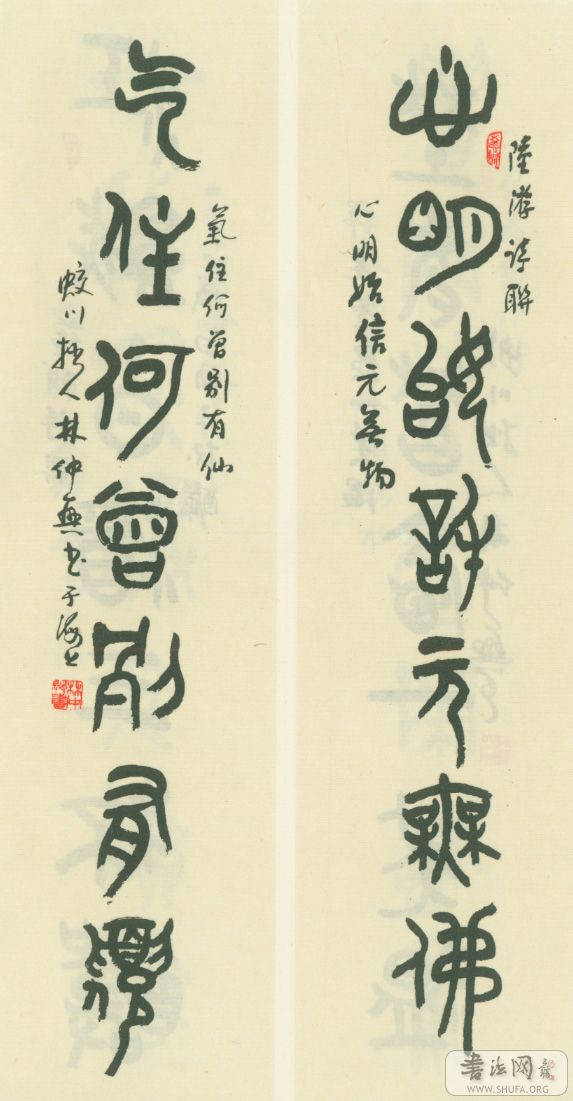 陸游詩聯
心明始信元無佛
心明始信元無佛
气住何曾別有僊
氣住何曾別有仙
蛟川拙人林仲興书于海上
書法网
WWW.SHUFA.ORG